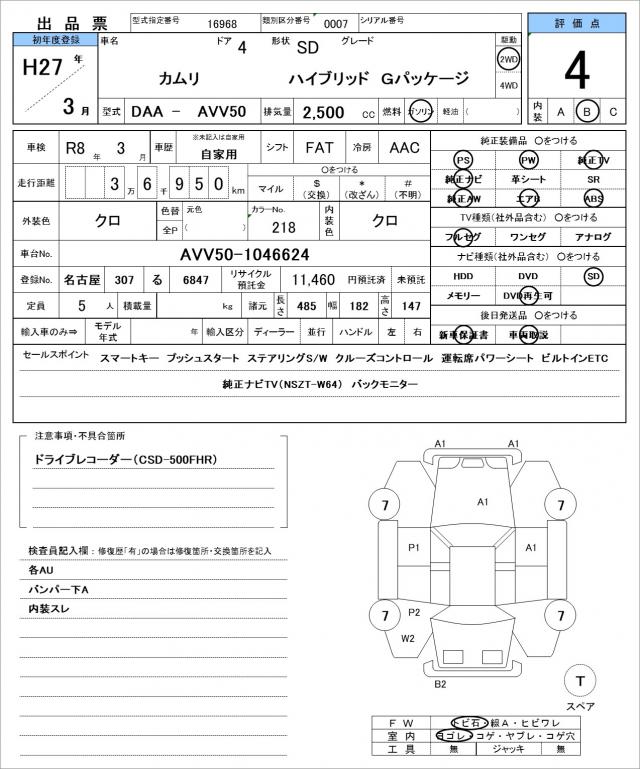 出品票 型式指定番号 16968 類別区分番号 0007 シリアル番号 評価点
初年度登録 車名 ドア 4 形状 SD グレード 駆動
H27 年 カムリ ハイブリッド Gパッケージ 2WD 4
4WD
3 月 型式 DAA － AVV50 排気量 2,500 cc 燃料 ガソリン 軽油 ( ) 内装 A B C
車検 R8 年 3 月 車歴 ※未記入は自家用 自家用 シフト FAT 冷房 AAC
走行距離 3 万 6 千 9 5 0 km マイル ○をつける $ (交換) * (改ざん) # (不明)
外装色 クロ 色替 元色 全P ( ) カラーNo. 218 内装色 クロ
車台No. AVV50-1046624
登録No. 名古屋 307 る 6847 リサイクル預託金 11,460 円預託済 未預託
定員 5 人 積載量 kg 諸元 長さ 485 幅 182 高さ 147
輸入車のみ⇒ モデル年式 年 輸入区分 ディーラー 並行 ハンドル 左 右
純正装備品 ○をつける
PS PW 純正TV
純正ナビ 革シート SR
純正AW エアB ABS
TV種類(社外品含む) ○をつける
フルセグ ワンセグ アナログ
ナビ種類(社外品含む) ○をつける
HDD DVD SD
メモリー DVD再生可
後日発送品 ○をつける
新車保証書 車両取説
セールスポイント スマートキー プッシュスタート ステアリングS/W クルーズコントロール 運転席パワーシート ビルトインETC
純正ナビTV(NSZT-W64) バックモニター
注意事項・不具合箇所
ドライブレコーダー(CSD-500FHR)
検査員記入欄：修復歴「有」の場合は修復箇所・交換箇所を記入
各AU
バンパー下A
内装スレ
A1 A1
A1
7 7
P1 A1
7 P2 7
W2
B2
T
スペア
FW トビ石・線A・ヒビワレ
室内 ヨゴレ・コゲ・ヤブレ・コゲ穴
工具 無 ジャッキ 無